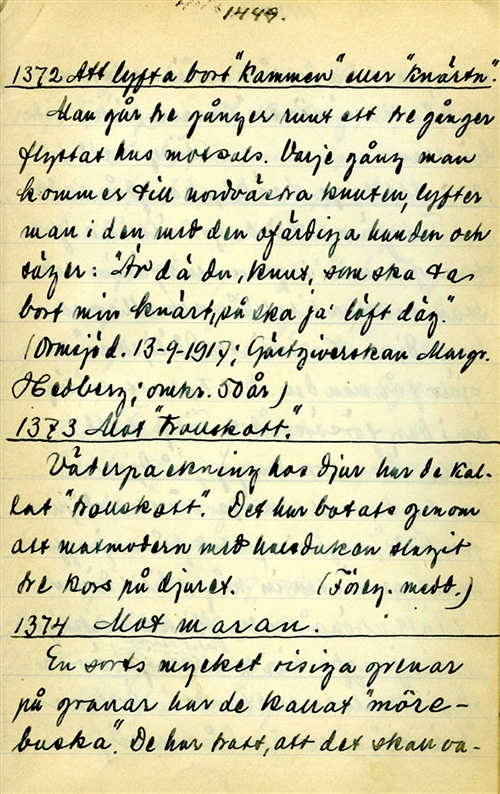 1449.
1372 Att lyfta bort "kammen" eller "knärtn".
Man går tre gånger runt ett tre gånger
flyttat hus motsols. Varje gång man
kommer till nordvästra knuten, lyfter
man i den med den ofärdiga handen och
säger: "Är dä du, knut, som ska ta
bort min knärt, så ska ja' löft däg."
(Ormsjö d. 13-9-1917; Gästgiverskan Margr.
Hedberg; omkr. 50 år)
1373 Mot "trollskott."
Väderpackning hos djur har de kal-
lat "trollskott". Det har botats genom
att matmodern med halsduken slagit
tre kors på djuret. (Föreg. medd.)
1374 Mot maran.
En sorts mycket risiga grenar
på granar har de kallat "möre-
buska". De har trott, att det skall va-